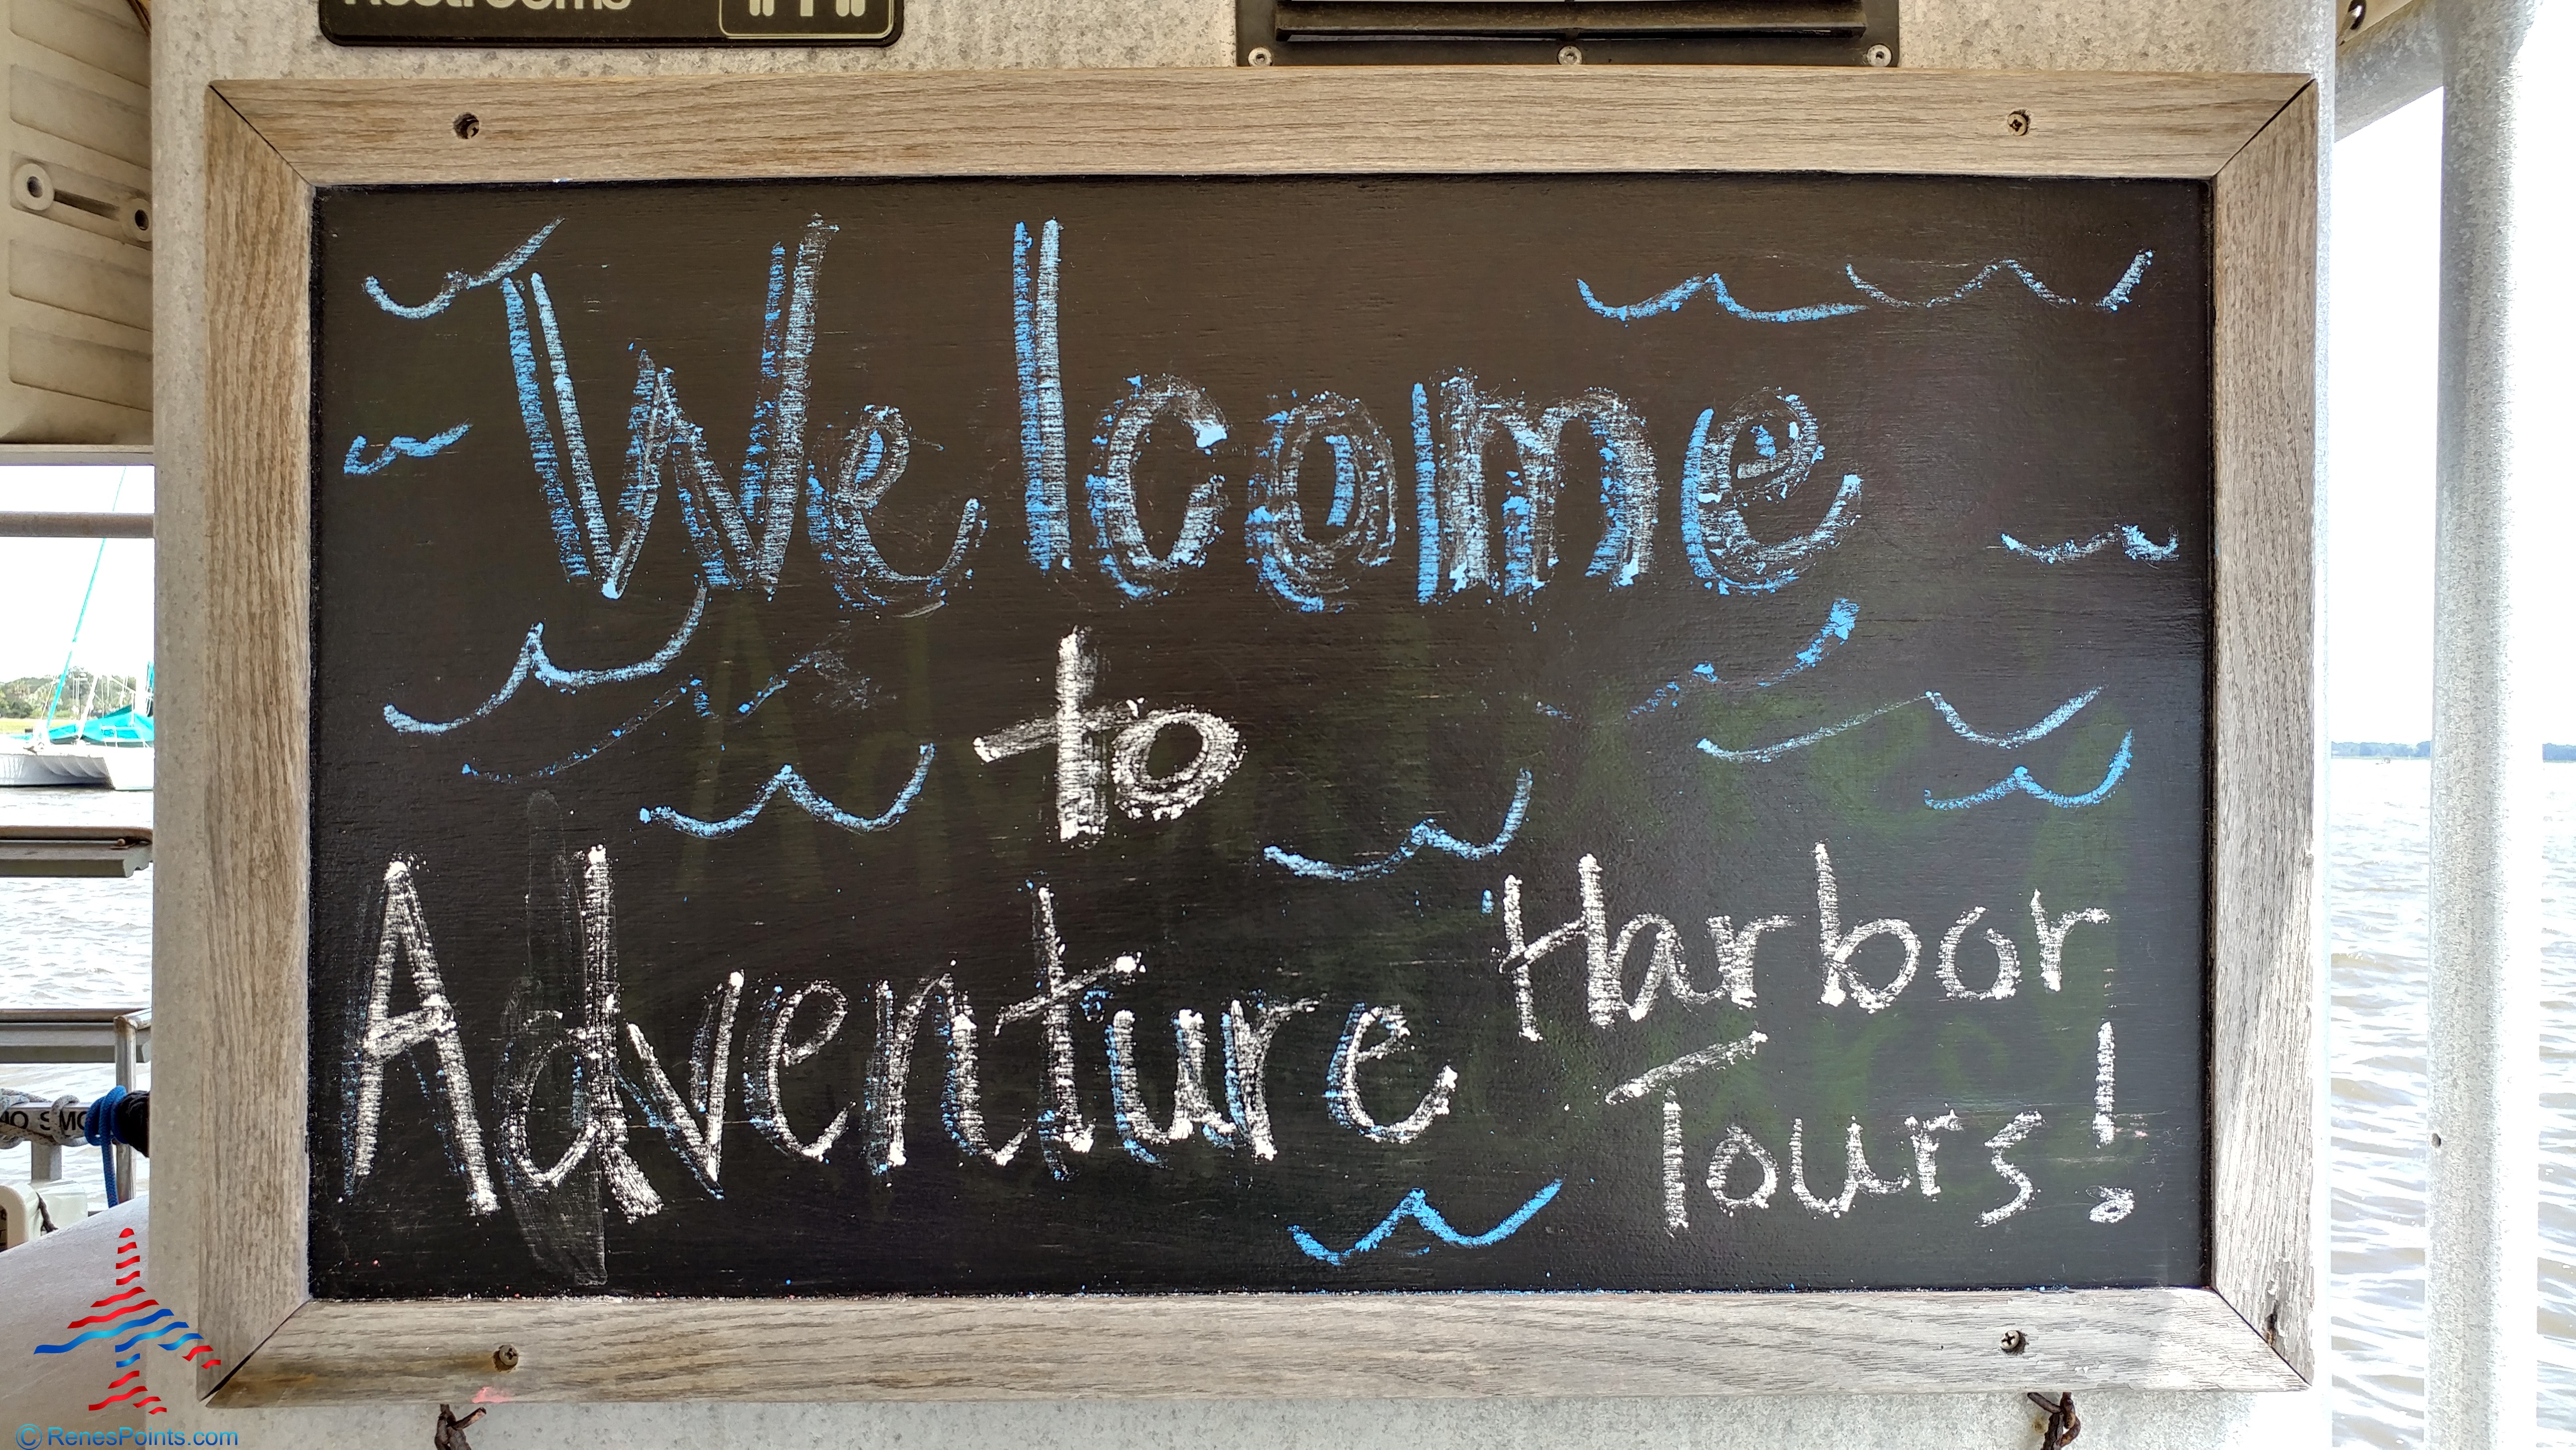 Restrooms
Welcome
to
Adventure Harbor
Tours!
© RenesPoints.com